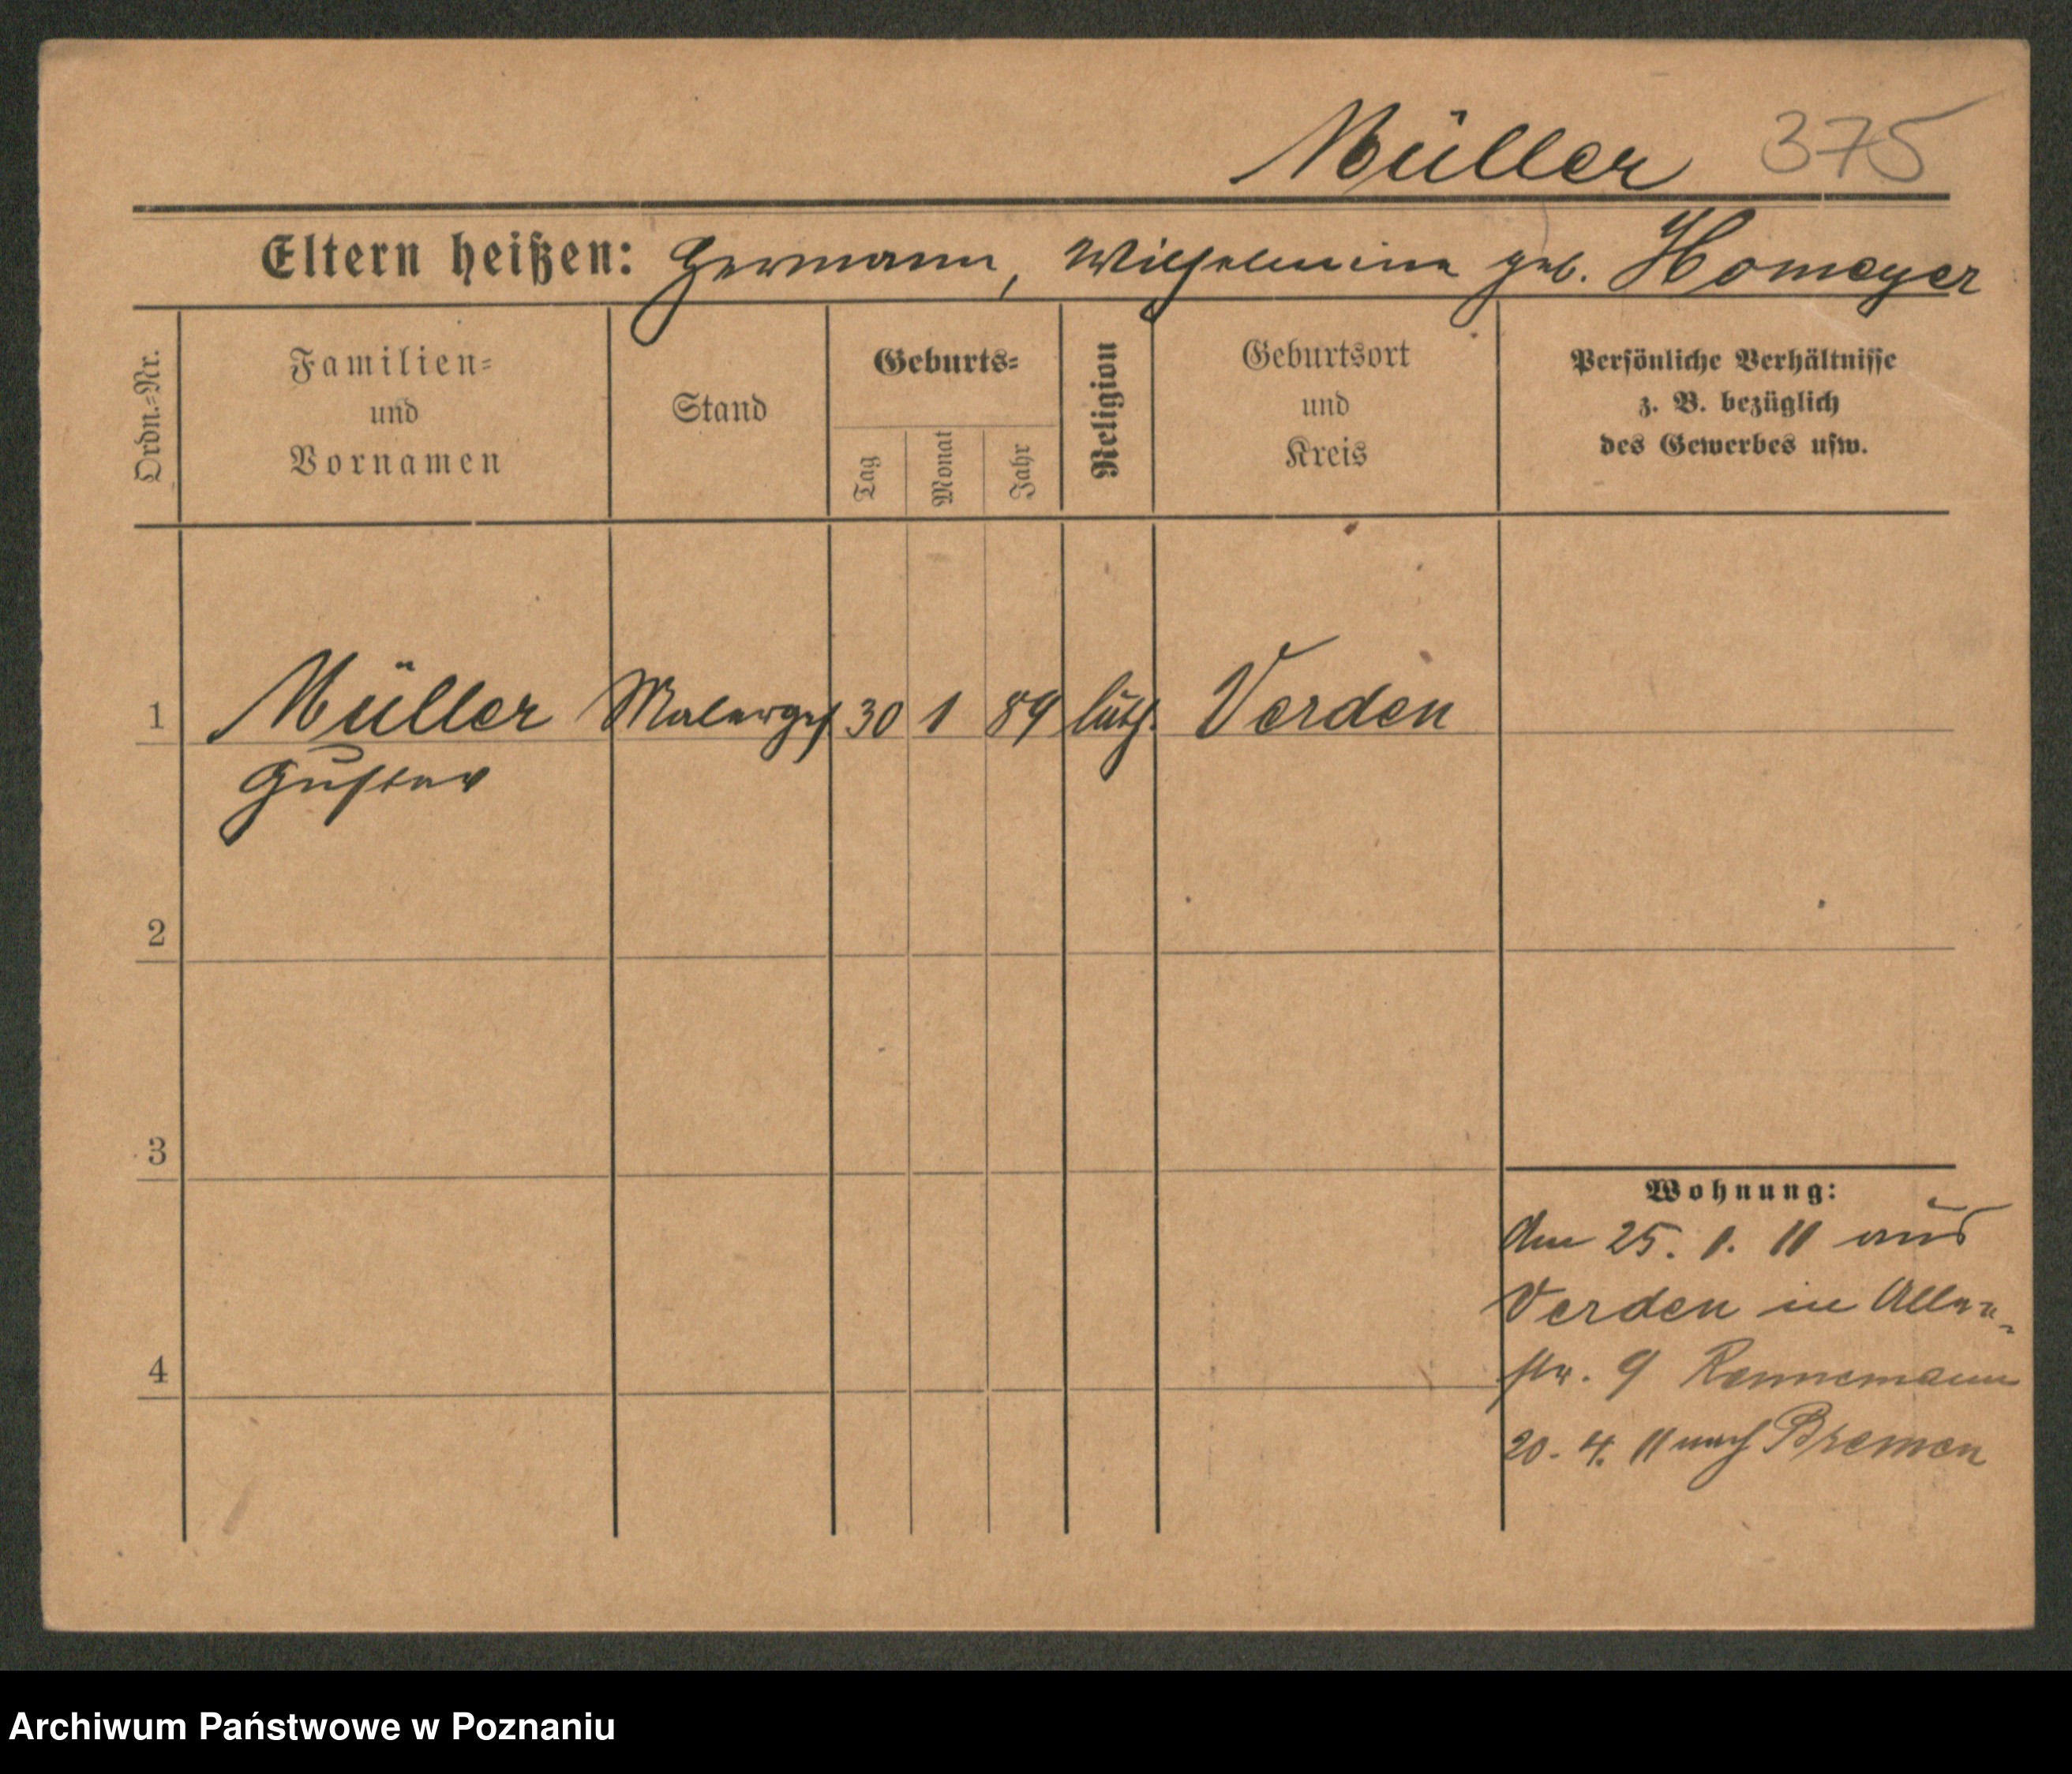 Müller 375
Eltern heißen: Hermann, Wilhelmine geb. Homeyer
Ordn.=Nr.
Familien=
und
Vornamen
Stand
Geburts=
Tag
Monat
Jahr
Religion
Geburtsort
und
Kreis
Persönliche Verhältnisse
z. B. bezüglich
des Gewerbes usw.
1 Müller Malergeh 30 1 89 luth. Verden
Gustav
2
3
4
Wohnung:
Am 25. 1. 11 aus
Verden in
str. 9 Rennemann
20. 4. 11 nach Bremen
Archiwum Państwowe w Poznaniu